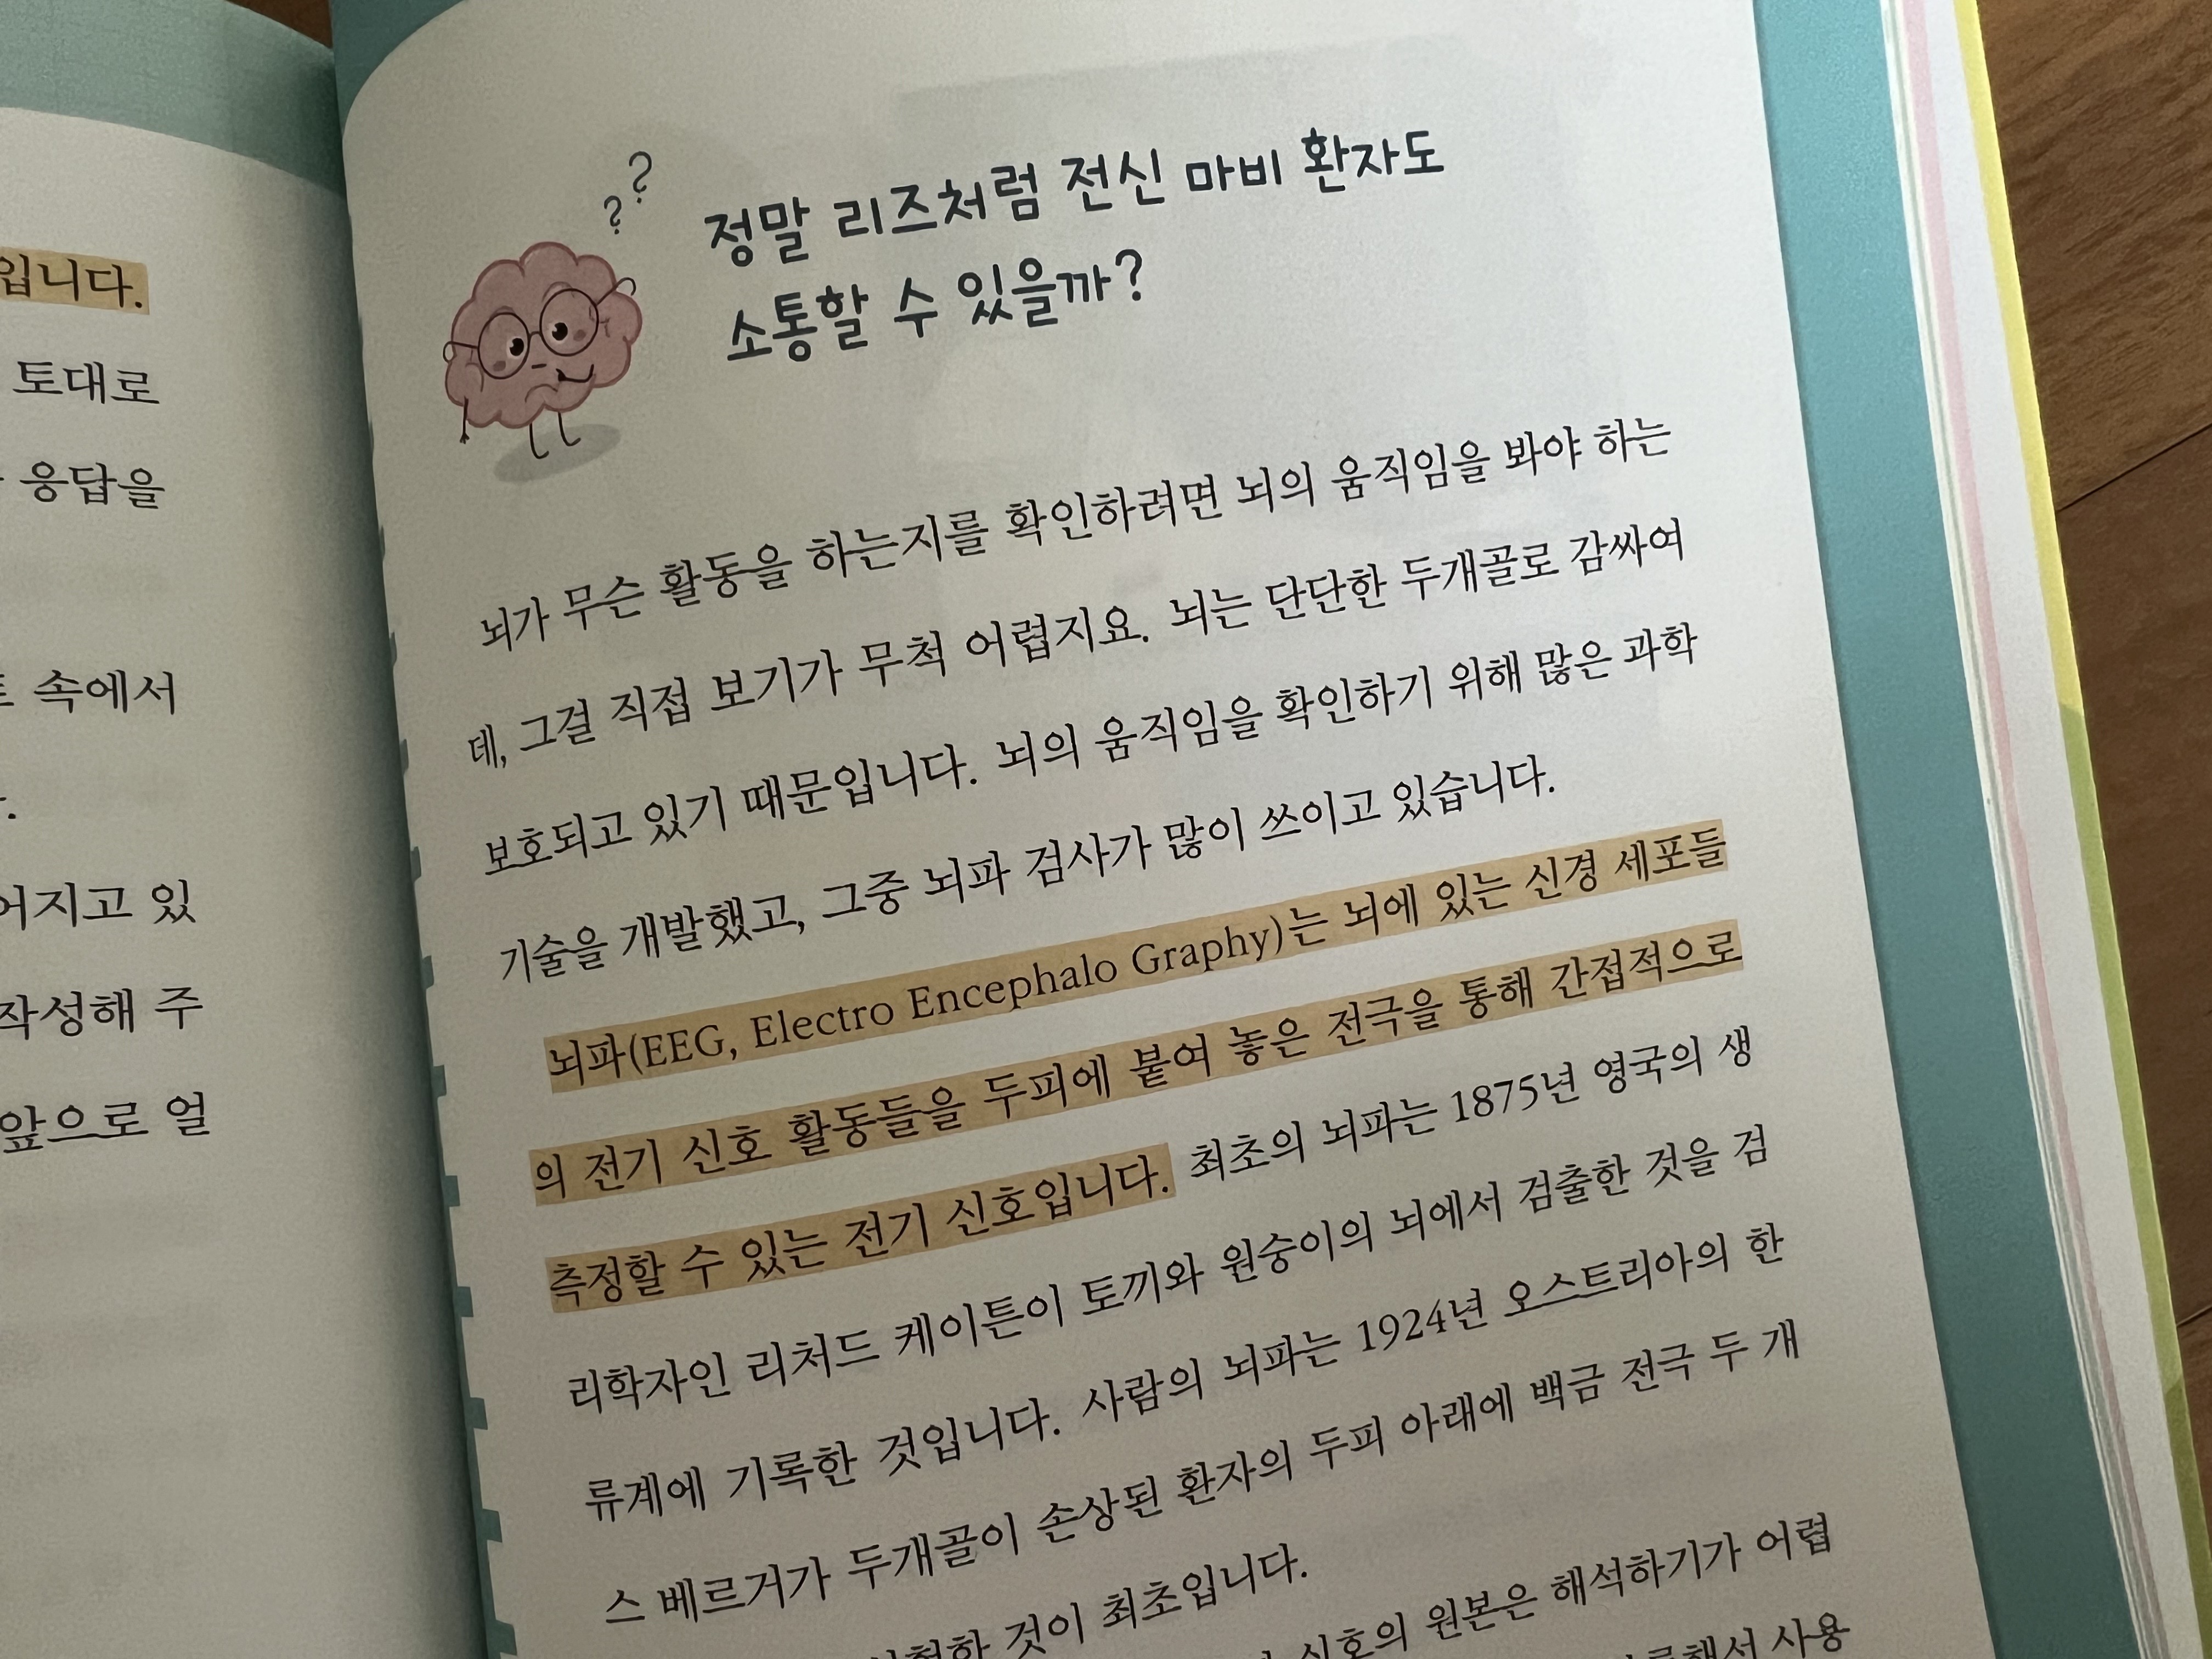 입니다.
토대로
응답을
속에서
어지고 있
작성해 주
앞으로 얼
? ?
정말 리즈처럼 전신 마비 환자도
소통할 수 있을까?
뇌가 무슨 활동을 하는지를 확인하려면 뇌의 움직임을 봐야 하는
데, 그걸 직접 보기가 무척 어렵지요. 뇌는 단단한 두개골로 감싸여
보호되고 있기 때문입니다. 뇌의 움직임을 확인하기 위해 많은 과학
기술을 개발했고, 그중 뇌파 검사가 많이 쓰이고 있습니다.
뇌파(EEG, Electro Encephalo Graphy)는 뇌에 있는 신경 세포들
의 전기 신호 활동들을 두피에 붙여 놓은 전극을 통해 간접적으로
측정할 수 있는 전기 신호입니다. 최초의 뇌파는 1875년 영국의 생
리학자인 리처드 케이튼이 토끼와 원숭이의 뇌에서 검출한 것을 검
류계에 기록한 것입니다. 사람의 뇌파는 1924년 오스트리아의 한
스 베르거가 두개골이 손상된 환자의 두피 아래에 백금 전극 두 개
것이 최초입니다.
신호의 원본은 해석하기가 어렵
사용